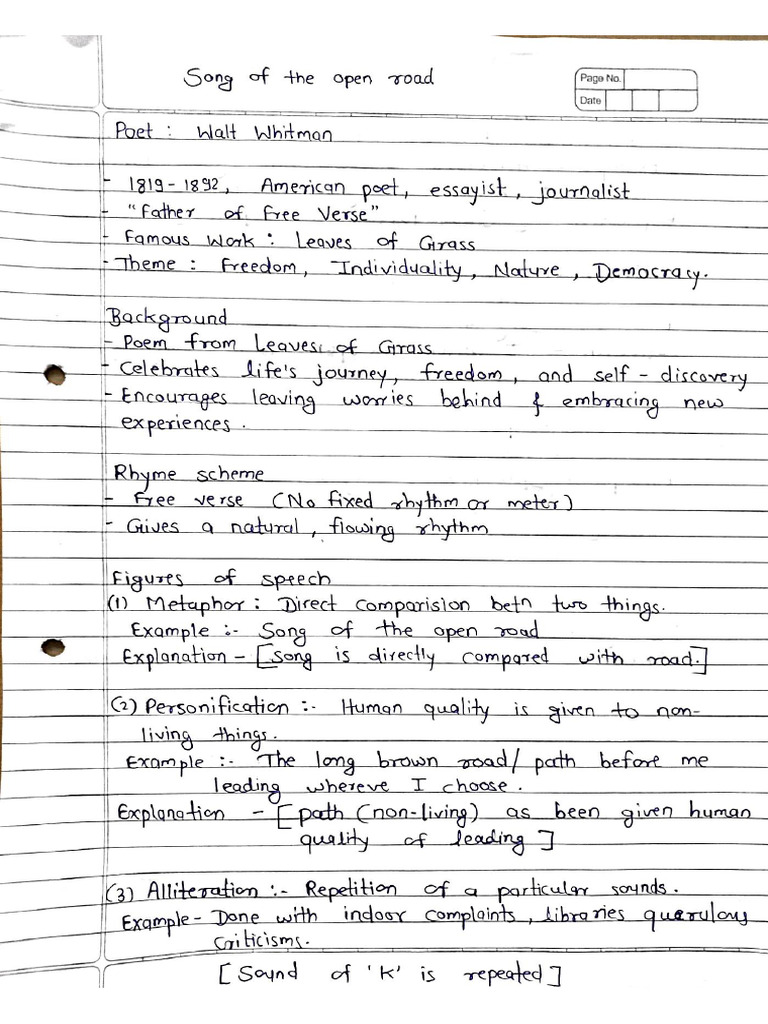 Song of the open road
Page No.
Date
Poet : Walt Whitman
- 1819-1892, American poet, essayist, journalist
- "Father of Free Verse"
- Famous Work : Leaves of Grass
- Theme : Freedom, Individuality, Nature, Democracy.
Background
- Poem from Leaves of Grass
- Celebrates life's journey, freedom, and self-discovery
- Encourages leaving worries behind & embracing new
experiences.
Rhyme scheme
- Free verse (No fixed rhythm or meter)
- Gives a natural, flowing rhythm
Figures of speech
(1) Metaphor : Direct comparision betn two things.
Example :- Song of the open road
Explanation - [song is directly compared with road.]
(2) Personification :- Human quality is given to non-
living things.
Example :- The long brown road/ path before me
leading whereve I choose.
Explanation - [path (non-living) as been given human
quality of leading]
(3) Alliteration :- Repetition of a particular sounds.
Example - Done with indoor complaints, libraries querulous
criticisms.
[Sound of 'K' is repeated]